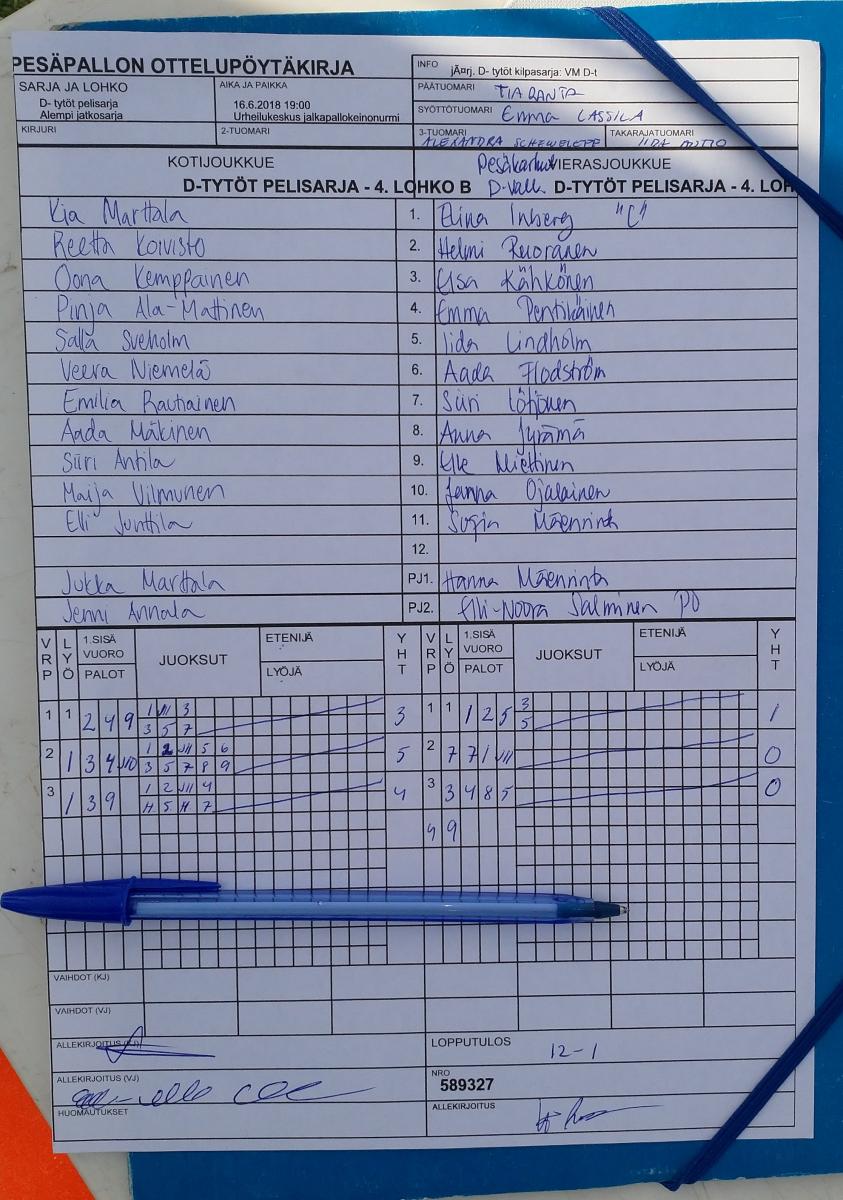 PESÄPALLON OTTELUPÖYTÄKIRJA
INFO jÃ¤rj. D- tytöt kilpasarja: VM D-t
SARJA JA LOHKO
D- tytöt pelisarja
Alempi jatkosarja
AIKA JA PAIKKA
16.6.2018 19:00
Urheilukeskus jalkapallokeinonurmi
PÄÄTUOMARI TIA RANTA
SYÖTTÖTUOMARI Emma LASSILA
KIRJURI
2-TUOMARI
3-TUOMARI ALEXANDRA
TAKARAJATUOMARI IIDA
KOTIJOUKKUE
Pesäkarhut VIERASJOUKKUE
D-TYTÖT PELISARJA - 4. LOHKO B
D-valk. D-TYTÖT PELISARJA - 4. LOH
Kia Marttala 1. Elina Inberg "C"
Reetta Koivisto 2. Helmi Ruoranen
Oona Kemppainen 3. Elsa Kähkönen
Pinja Ala-Mattinen 4. Emma Pentikäinen
Salla Sveholm 5. Iida Lindholm
Veera Niemelä 6. Aada Flodström
Emilia Rautiainen 7. Siiri Löhönen
Aada Mäkinen 8. Anna Jyrämä
Siiri Antila 9. Miettinen
Maija Vilmunen 10. Janna Ojalainen
Elli Junttila 11. Mäenrinta
12.
Jukka Marttala PJ1. Hanna Mäenrinta
Jenni Annala PJ2. Elli-Noora Salminen PO
VRP LYÖ 1.SISÄ VUORO PALOT JUOKSUT ETENIJÄ LYÖJÄ YHT VRP LYÖ 1.SISÄ VUORO PALOT JUOKSUT ETENIJÄ LYÖJÄ YHT
1 1 2 4 9 1 VII 3 3 1 1 1 2 5 3 1
3 5 7 5
2 1 3 4 1 2 VII 5 6 5 2 7 7 1 VII 0
3 5 7 8 9
3 1 3 9 1 2 VII 4 4 3 3 4 8 5 0
H 5 H 7
4 9
VAIHDOT (KJ)
VAIHDOT (VJ)
ALLEKIRJOITUS (KJ)
LOPPUTULOS 12-1
ALLEKIRJOITUS (VJ)
NRO
589327
HUOMAUTUKSET
ALLEKIRJOITUS